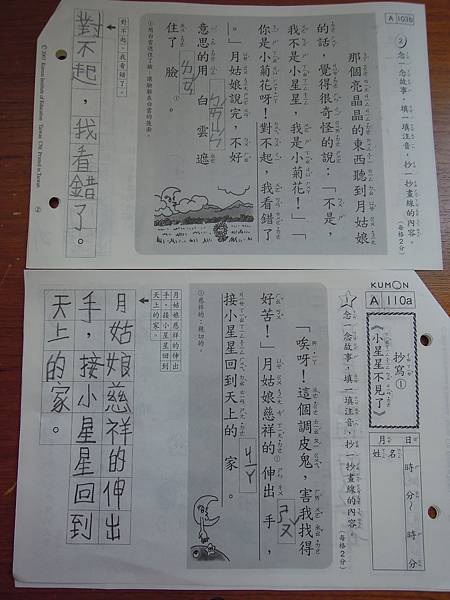 A 103b
② 念一念故事，填一填注音，抄一抄畫線的內容。
(每格2分)
那個亮晶晶的東西聽到月姑娘
的話，覺得很奇怪的說：「不是，
我不是小星星，我是小菊花！」「
你是小菊花呀！對不起，我看錯了
。」月姑娘說完，不好
意思的用 白雲遮
住了 臉 ①。
對不起，我看錯了。
對不起，我看錯了。
②
KUMON
A 110a
抄寫①
《小星星不見了》
月 日
姓名
時 分～ 時 分
① 念一念故事，填一填注音，抄一抄畫線的內容。
(每格2分)
「唉呀！這個調皮鬼，害我找得
好苦！」月姑娘慈祥的①伸出 手，
接小星星回到天上的 家。
ㄕㄡˇ
ㄐㄧㄚ
①慈祥的：親切的。
月姑娘慈祥的伸出
手，接小星星回到
天上的家。
月姑娘慈祥的伸出
手，接小星星回到
天上的家。